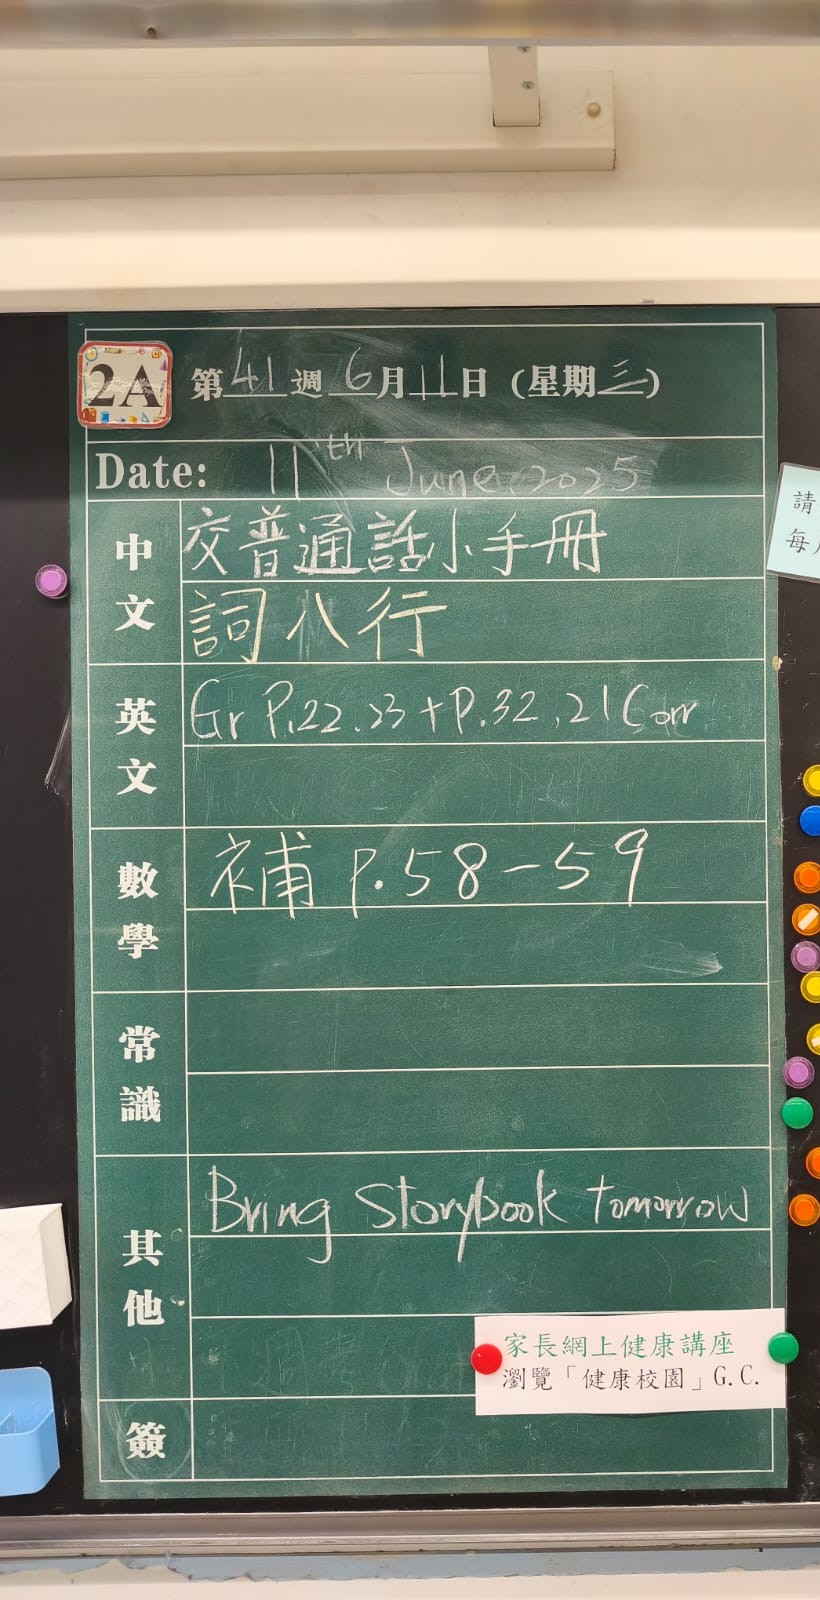 2A
第41週6月11日(星期三)
Date: 11th June, 2025
中文
交普通話小手冊
詞八行
英文
Gr P.22.23+P.32,21 Corr
數學
補 P.58-59
常識
其他
Bring Storybook tomorrow
家長網上健康講座
瀏覽「健康校園」G.C.
簽
請
每